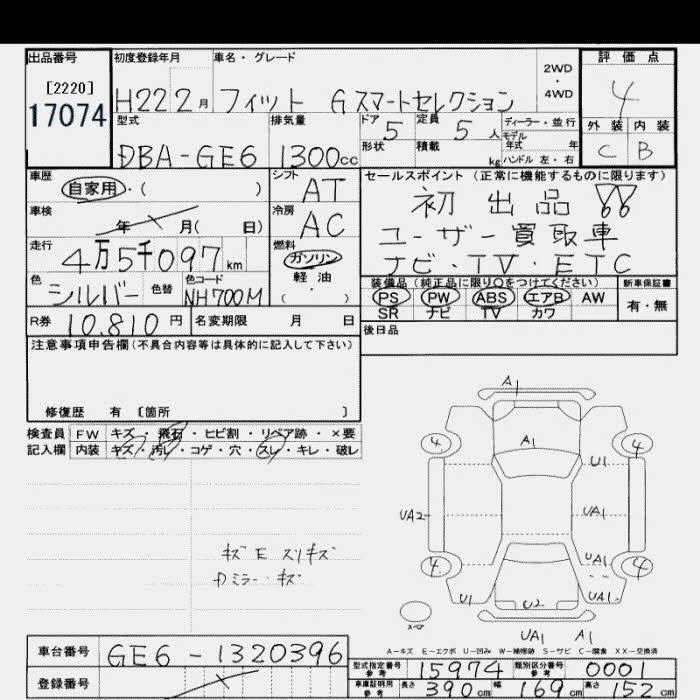 出品番号 初度登録年月 車名・グレード 評価点
[2220] 2WD・4WD
17074 H22 2月 フィット Gスマートセレクション 4
型式 排気量 ドア 5 定員 5人 ディーラー・並行 外装 内装
形状 積載 kg モデル年式 年 C B
DBA-GE6 1300cc ハンドル 左・右
車歴 シフト セールスポイント (正常に機能するものに限ります)
自家用・( ) AT 初出品!!
車検 年 月( 日) 冷房 AC ユーザー買取車
走行 燃料 ナビ・TV・ETC
4万5千097km ガソリン
色 色替 色コード 軽・油 装備品(純正品に限り○をつけてください) 新車保証書
シルバー NH700M ( ) PS PW ABS エアB AW 有・無
SR ナビ TV カワ
R券 10.810円 名変期限 月 日 後日品
注意事項申告欄(不具合内容等は具体的に記入して下さい)
修復歴 有 [箇所 ]
検査員 FW キズ・飛石・ヒビ割・リペア跡・×要
記入欄 内装 キズ・汚レ・コゲ・穴・スレ・キレ・破レ
A1
4 A1 4
U1
UA2 UA1
4 UA1 4
U1 U2 UA1
スペア
UA1 A1
キズE スリキズ
Dミラーキズ
A-キズ E-エクボ U-凹み W-補修跡 S-サビ C-腐食 XX-交換済
車台番号 GE6-1320396
型式指定番号 参考 15974 類別区分番号 参考 0001
登録番号
車庫証明用 参考 長さ 390cm 幅 169cm 高さ 152cm